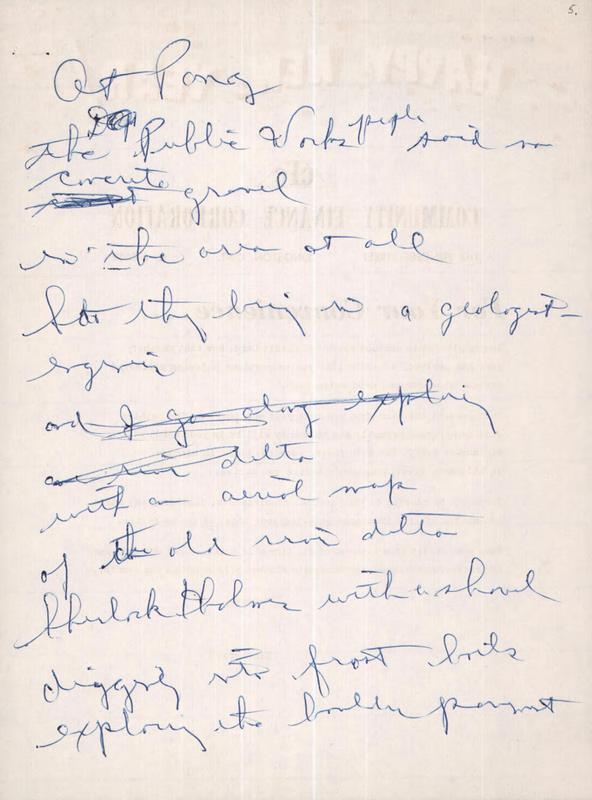 5.
At Pang
the Public Works people said no
concrete gravel
in the area at all
So they bring in a geologist-
engineer
and I go along exploring
river delta
with an aerial map
of the old river delta
Sherlock Holmes with a shovel
digging into frost boils
exploring the boulder pavement